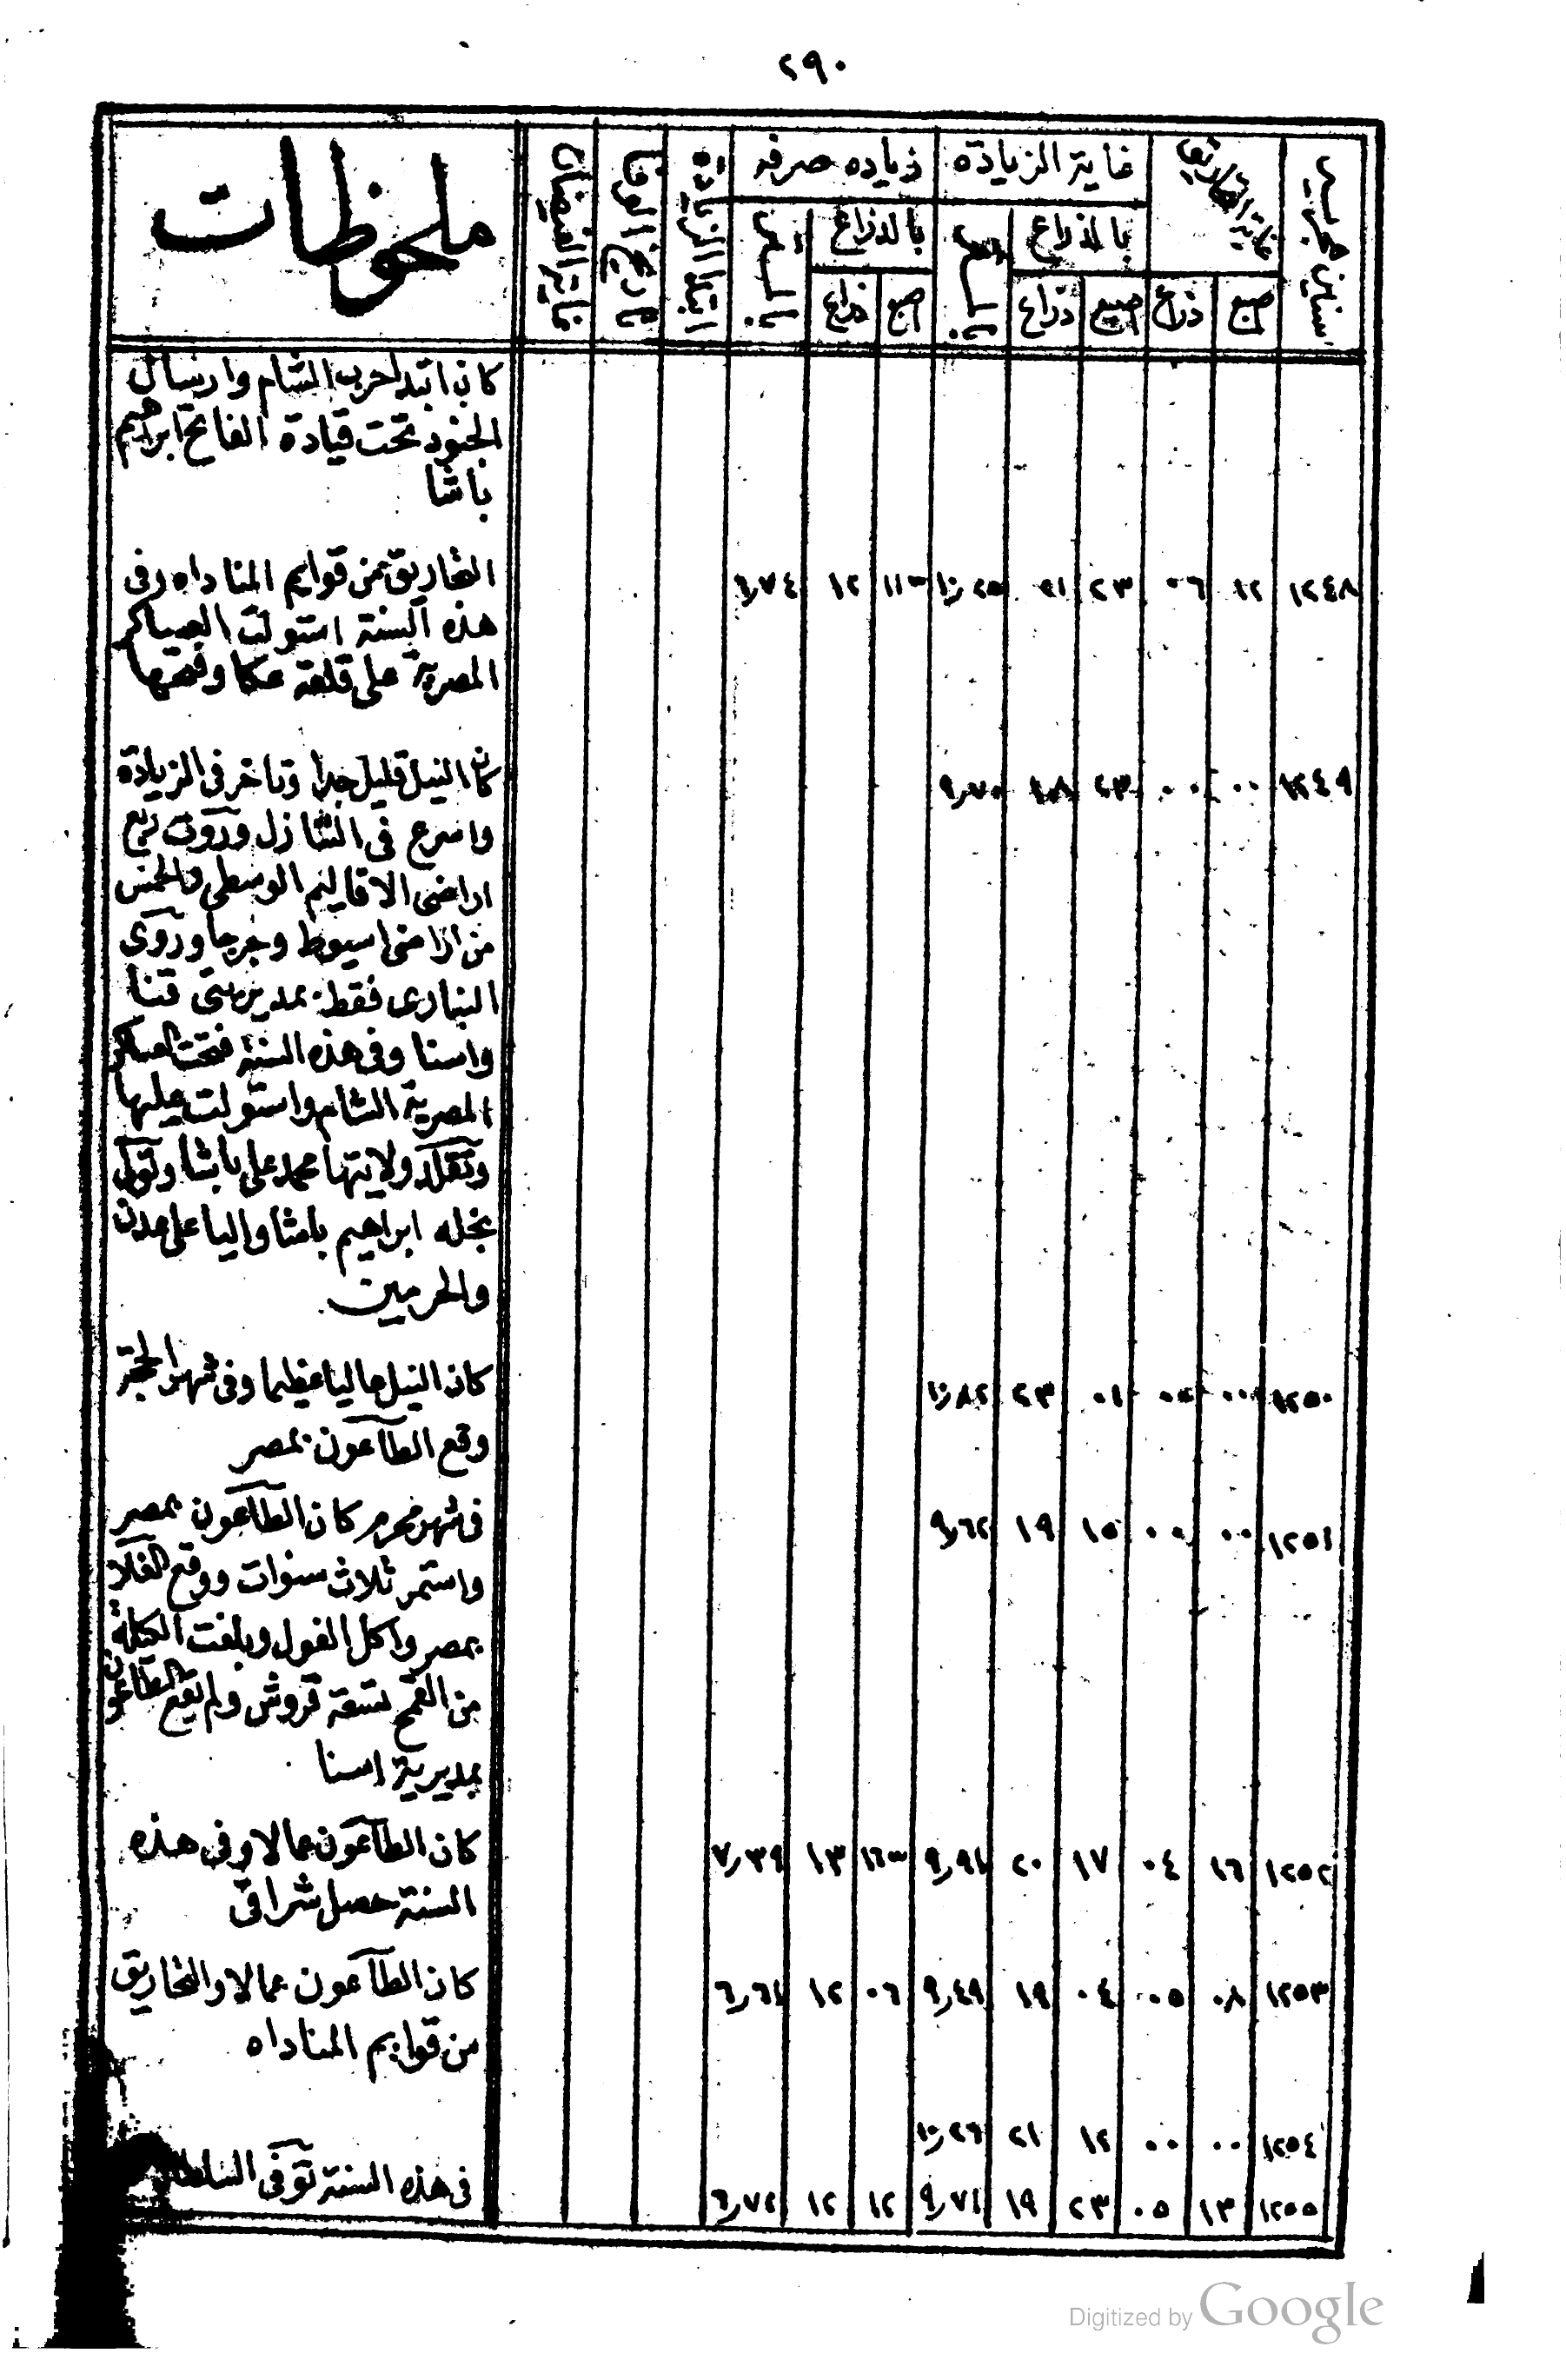 ٢٩٠
سنين هجريه
نهاية التحاريق
غاية الزيادة
زياده صرفه
ابتدا الزيادة
تاريخ الوفا
غاية الفيضان
ملحوظات
بالذراع
بالمتر
بالذراع
بالمتر
اصبع
ذراع
اصبع
ذراع
اصبع
ذراع
كان ابتدا حرب الشام وارسال
الجنود تحت قيادة الفاتح ابراهيم
باشا
١٢٤٨ ١٢ ٠٦ ٢٣ ٢١ ١٠٫٢٥ ١١ ١٢ ٦٫٧٤
التحاريق من قوايم المناداه وفى
هذه السنة استولت العساكر
المصرية على قلعة عكا وفتحتها
١٢٤٩ ٠٠ ٠٠ ٢٣ ١٨ ٩٫٧٠
كان النيل قليل جدا وتاخر فى الزيادة
واسرع فى التنازل وروت ربع
اراضى الاقاليم الوسطى والخمس
من اراضى اسيوط وجرجا وروى
النبارى فقط بمديريتى قنا
واسنا وفى هذه السنة فتحت العساكر
المصرية الشام واستولت عليها
وتقلد ولايتها محمد على باشا وتولى
نجله ابراهيم باشا واليا على عدن
والحرمين
١٢٥٠ ٠٠ ٠٠ ٠١ ٢٣ ١٠٫٨٢
كان النيل عاليا عظيما وفى شهر الحجة
وقع الطاعون بمصر
١٢٥١ ٠٠ ٠٠ ١٥ ١٩ ٩٫٦٢
فى شهر محرم كان الطاعون بمصر
واستمر ثلاث سنوات ووقع الغلا
بمصر واكل الفول وبلغت الكيلة
من القمح تسعة قروش ولم يقع الطاعون
بمديرية اسنا
١٢٥٢ ١٦ ٠٤ ١٧ ٢٠ ٩٫٩١ ١٦ ١٣ ٧٫٣٩
كان الطاعون عمالا وفى هذه
السنة حصل شراقى
١٢٥٣ ٠٨ ٠٥ ٠٤ ١٩ ٩٫٤٩ ٠٦ ١٢ ٦٫٦١
كان الطاعون عمالا والتحاريق
من قوايم المناداه
١٢٥٤ ٠٠ ٠٠ ١٢ ٢١ ١٠٫٢٦
١٢٥٥ ١٣ ٠٥ ٢٣ ١٩ ٩٫٧١ ١٢ ١٢ ٦٫٧٢
فى هذه السنة توفى السلطان
Digitized by Google